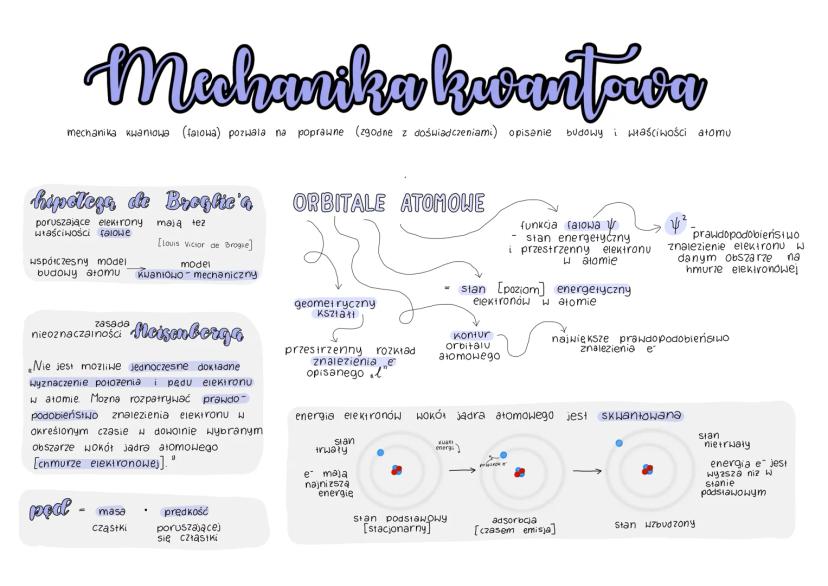 Mechanika kwantowa
mechanika kwantowa (falowa) pozwala na poprawne (zgodne z doświadczeniami) opisanie budowy i właściwości atomu
hipoteza de Broglie'a
poruszające elektrony mają też
właściwości falowe
[Louis Victor de Broglie]
współczesny model → model
budowy atomu kwantowo-mechaniczny
zasada
nieoznaczalności Heisenberga
„Nie jest możliwe jednoczesne dokładne
wyznaczenie położenia i pędu elektronu
w atomie. Można rozpatrywać prawdo-
podobieństwo znalezienia elektronu w
określonym czasie w dowolnie wybranym
obszarze wokół jądra atomowego
[chmurze elektronowej]."
pęd = masa · prędkość
cząstki poruszającej
się cząstki
ORBITALE ATOMOWE
funkcja falowa ψ
- stan energetyczny
i przestrzenny elektronu
w atomie
ψ²
-prawdopodobieństwo
znalezienie elektronu w
danym obszarze na
hmurze elektronowej
= stan [poziom] energetyczny
elektronów w atomie
geometryczny
kształt
przestrzenny rozkład
znalezienia e⁻
opisanego „l"
kontur
orbitalu
atomowego
największe prawdopodobieństwo
znalezienia e⁻
energia elektronów wokół jądra atomowego jest skwantowana
stan
trwały
e⁻ mają
najniższą
energię
stan podstawowy
[stacjonarny]
kwant
energii
przeskok e⁻
adsorbcja
[czasem emisja]
stan wzbudzony
stan
nietrwały
energia e⁻ jest
wyższa niż w
stanie
podstawowym